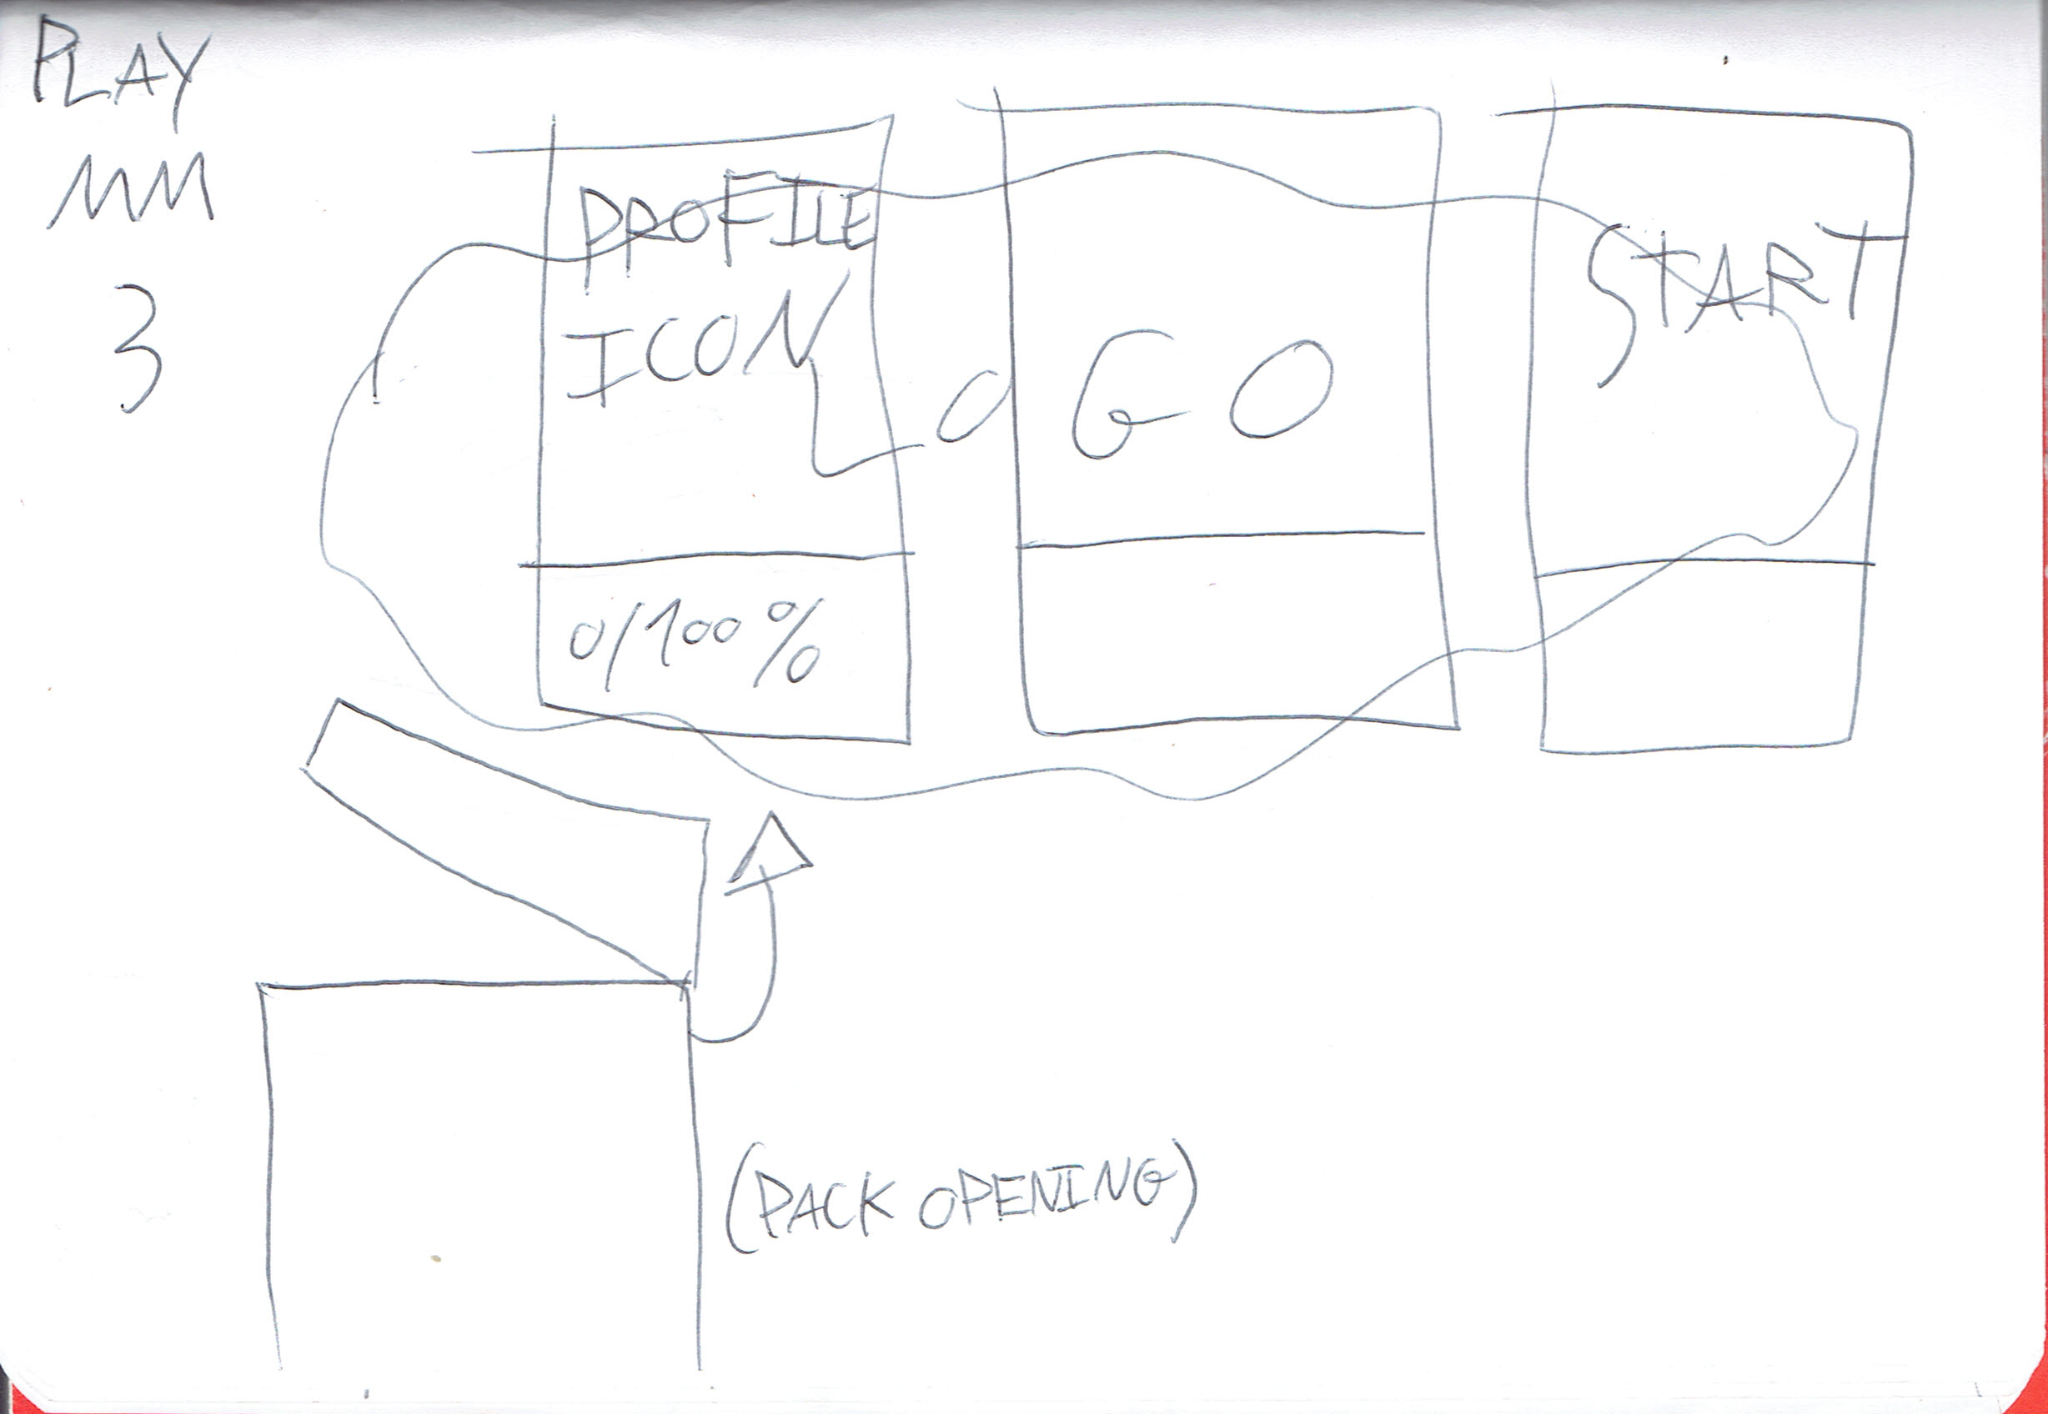 PLAY
MM
3
PROFILE
ICON
0/100%
GO
START
(PACK OPENING)